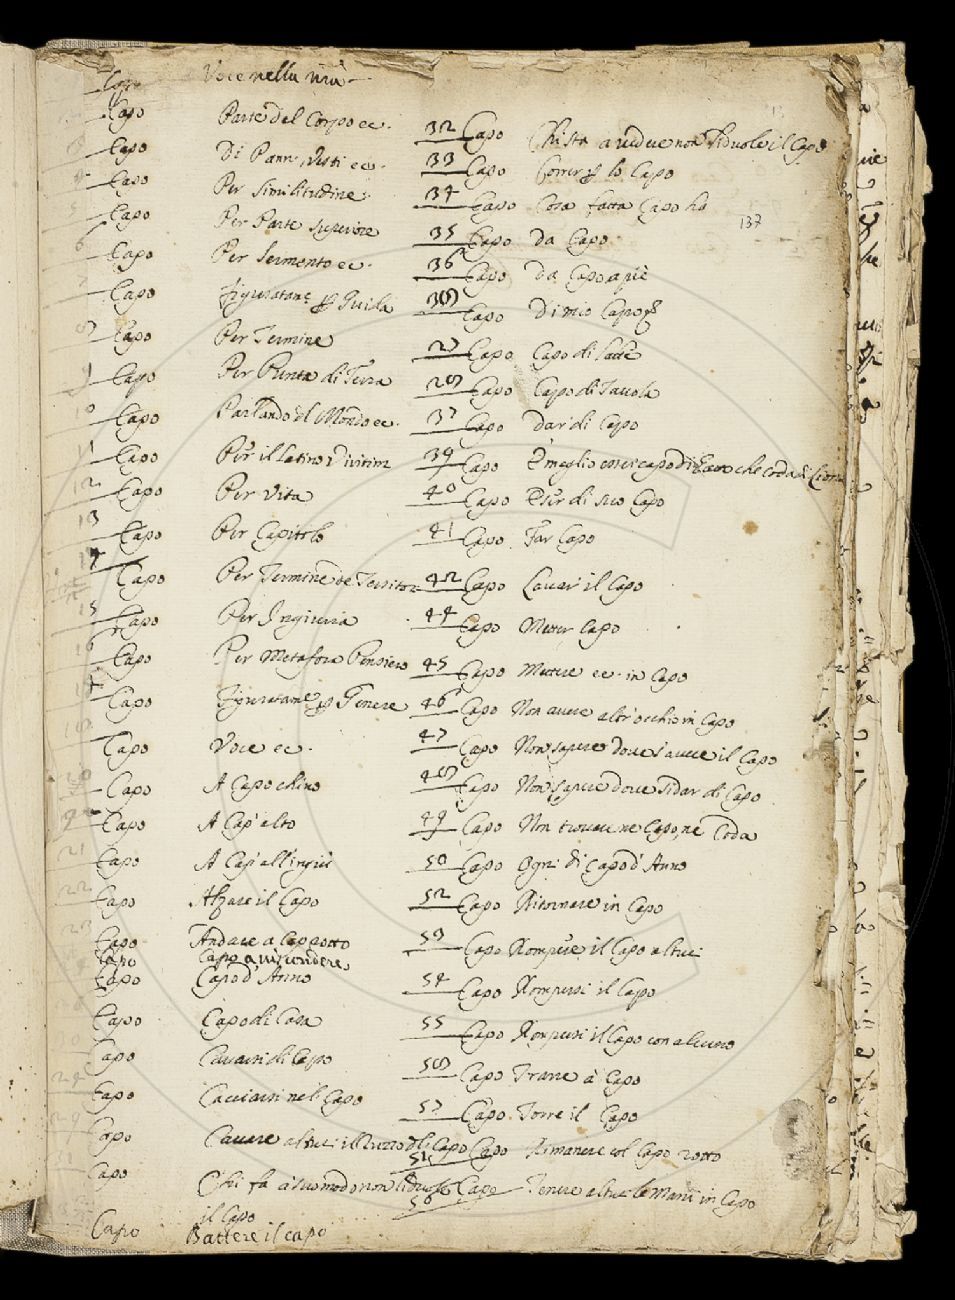 Capo Voce nella ma
Capo Parte del Corpo ec.
Capo Di Panni, Vesti ec.
4 Capo Per Similitudine.
5 Capo Per Parte superiore
6 Capo Per sermento ec.
7 Capo figuratam.e p Guida
8 Capo Per Termine
9 Capo Per Punta di Terra
10 Capo Parlando del Mondo ec.
11 Capo Per il latino
12 Capo Per Vita
13 Capo Per Capitolo
Capo Per Termine de
15 Capo Per Ingiuria
16 Capo Per Metafora Pensiero
Capo Figuratam.e p Genere
Capo Voce ec.
Capo A Capo chino
Capo A Cap' alto
21 Capo A Cap' all'ingiù
22 Capo Alzare il Capo
23 Capo Andare a Capo rotto
Capo Capo a niscondere
Capo Capo d' Anno
Capo Capo di Casa
Capo Cavarsi di Capo
Capo Cacciarsi nel Capo
29 Capo Cavare altrui il Ruzzo del Capo
31 Capo Chi fa a suo modo non li duole
il Capo
Capo Battere il capo
32 Capo Chi sta a vedere non li duole il Capo
33 Capo Correr p lo Capo
34 Capo Cosa fatta Capo ha
137
35 Capo da Capo
36 Capo da Capo a piè
38 Capo Di mio Capo
27 Capo Capo di latte
28 Capo Capo di Tavola
37 Capo dar di Capo
39 Capo È meglio esser capo di che coda di Lione
40 Capo Esser di suo Capo
41 Capo Far Capo
42 Capo Lavar il Capo
44 Capo Metter Capo
45 Capo Mettere ec. in Capo
46 Capo Non avere altr' occhio in Capo
47 Capo Non sapere dove s'avere il Capo
48 Capo Non sapere dove si dar di Capo
49 Capo Non trovare ne Capo, ne Coda
50 Capo Ogni dì Capo d' Anno
52 Capo Ritornare in Capo
53 Capo Rompere il Capo altrui
54 Capo Rompersi il Capo
55 Capo Rompersi il Capo con alcuno
58 Capo Trarre à Capo
57 Capo Torre il Capo
51 Capo Rimanere col Capo rotto
56 Capo Tenere altrui le Mani in Capo